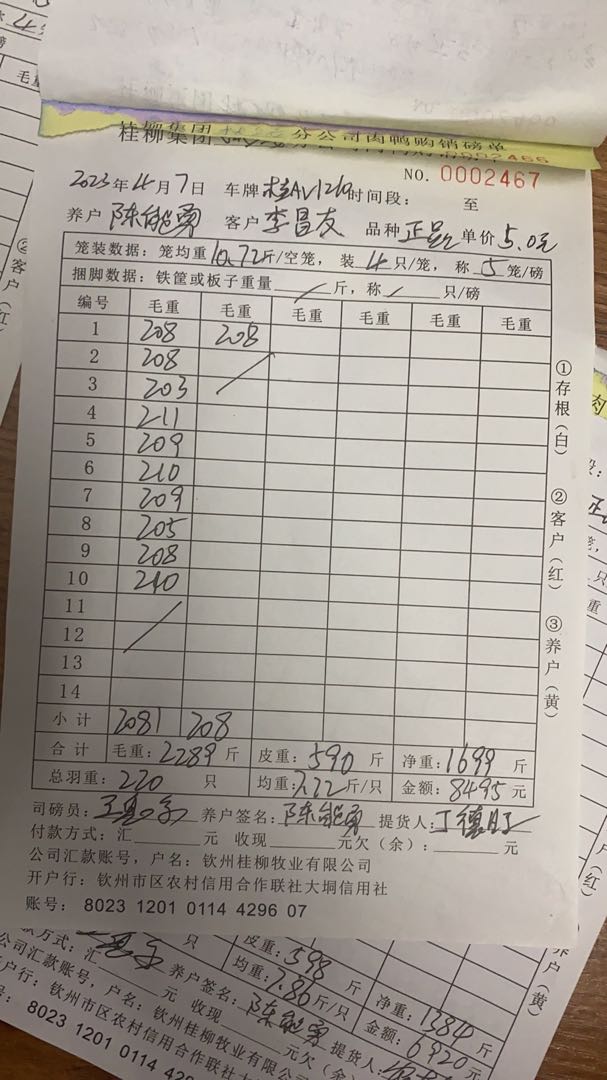 分公司肉鸭购销磅单
桂柳集团
NO. 0002467
2023年4月7日 车牌 时间段: 至
养户 陈能勇 客户 李昌友 品种 正品 单价 5.0元
笼装数据: 笼均重10.72斤/空笼, 装4只/笼, 称5笼/磅
捆脚数据: 铁筐或板子重量/斤, 称/只/磅
编号 毛重 毛重 毛重 毛重 毛重 毛重
1 208 208
2 208
3 203
4 211
5 209
6 210
7 209
8 205
9 208
10 210
11
12
13
14
小计 2081 208
合计 毛重: 2289斤 皮重: 590斤 净重: 1699斤
总羽重: 220只 均重: 7.72斤/只 金额: 8495元
司磅员: 养户签名: 陈能勇 提货人: 丁德旺
付款方式: 汇 元 收现 元欠(余): 元
公司汇款账号, 户名: 钦州桂柳牧业有限公司
开户行: 钦州市区农村信用合作联社大垌信用社
账号: 8023 1201 0114 4296 07
①存根(白) ②客户(红) ③养户(黄)
只 皮重: 598斤 净重: 1384斤
均重: 7.86斤/只 金额: 6920元
款方式: 汇 元 收现 元欠(余):
养户签名: 陈能勇 提货人:
公司汇款账号, 户名: 钦州桂柳牧业有限公
户行: 钦州市区农村信用合作联社
8023 1201 0114 4296